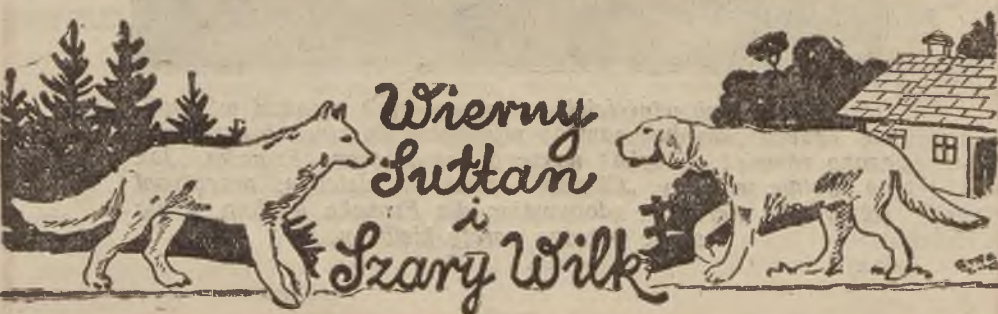 Wierny
Sułtan
i
Szary Wilk